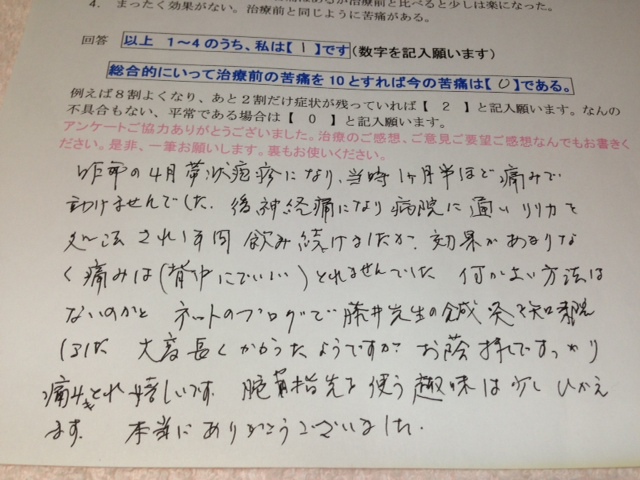 4. まったく効果がない。治療前と同じように苦痛がある。
回答 以上 1~4のうち、私は【 1 】です(数字を記入願います)
総合的にいって治療前の苦痛を10とすれば今の苦痛は【 0 】である。
例えば8割よくなり、あと2割だけ症状が残っていれば【 2 】と記入願います。なんの
不具合もない、平常である場合は【 0 】と記入願います。
アンケートご協力ありがとうございました。治療のご感想、ご意見ご要望ご感想なんでもお書きく
ださい。是非、一筆お願いします。裏もお使いください。
昨年の4月帯状疱疹になり、当時1ヶ月半ほど痛みで
動けませんでした。後神経痛になり病院に通いリリカを
処法され1年間飲み続けましたが、効果があまりな
く痛みは(背中に)とれませんでした 何かよい方法は
ないのかと ネットのブログで藤井先生の鍼灸を知り
しました 大変長くかかったようですが、お蔭様ですっかり
痛みもとれ嬉しいです。腕 指先を使う趣味は少しひかえ
ます。 本当にありがとうございました。